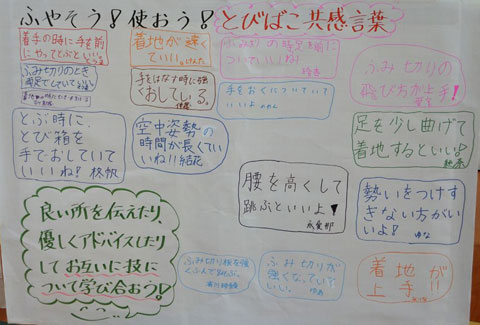 ふやそう!使おう!とびばこ共感言葉
着手の時に手を前
にやってとぶといい。
着地が遠く
いい。
ふみ切りのとき
両足でしていて
手をはなす時に強
くおしている。
手をおくについていて
いいよ
ふみ切りの
飛び方が上手!
とぶ時に
とび箱を
手でおしていて
いいね!
空中姿勢の
時間が長くてい
いね!!結花
足を少し曲げて
着地するといい!
腰を高くして
跳ぶといいよ!
勢いをつけす
ぎない方がい
いよ! ゆな
良い所を伝えたり、
優しくアドバイスしたり
してお互いに技に
ついて学び合おう!
ふみ切り板を強
くふんで跳ぶ。
ふみ切りが
強くなっていて
いい。
着地が
上手!!